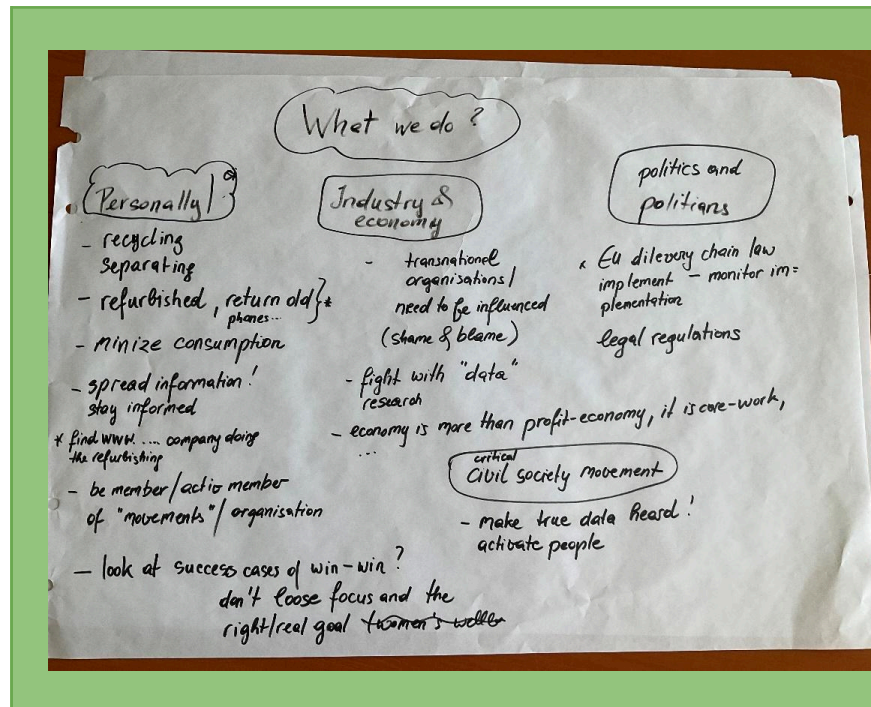 What we do ?
Personally!
- recycling
separating
- refurbished, return old } *
phones...
- minize consumption
- spread information!
stay informed
* find www. .... company doing
the refurbishing
- be member/activ member
of "movements"/organisation
- look at success cases of win-win?
don't loose focus and the
right/real goal
Industry &
economy
- transnational
organisations/
need to be influenced
(shame & blame)
- fight with "data"
research
- economy is more than profit-economy, it is care-work,
....
politics and
politians
* EU dilevery chain law
implement - monitor im=
plementation
legal regulations
critical
civil society movement
- make true data heard!
activate people